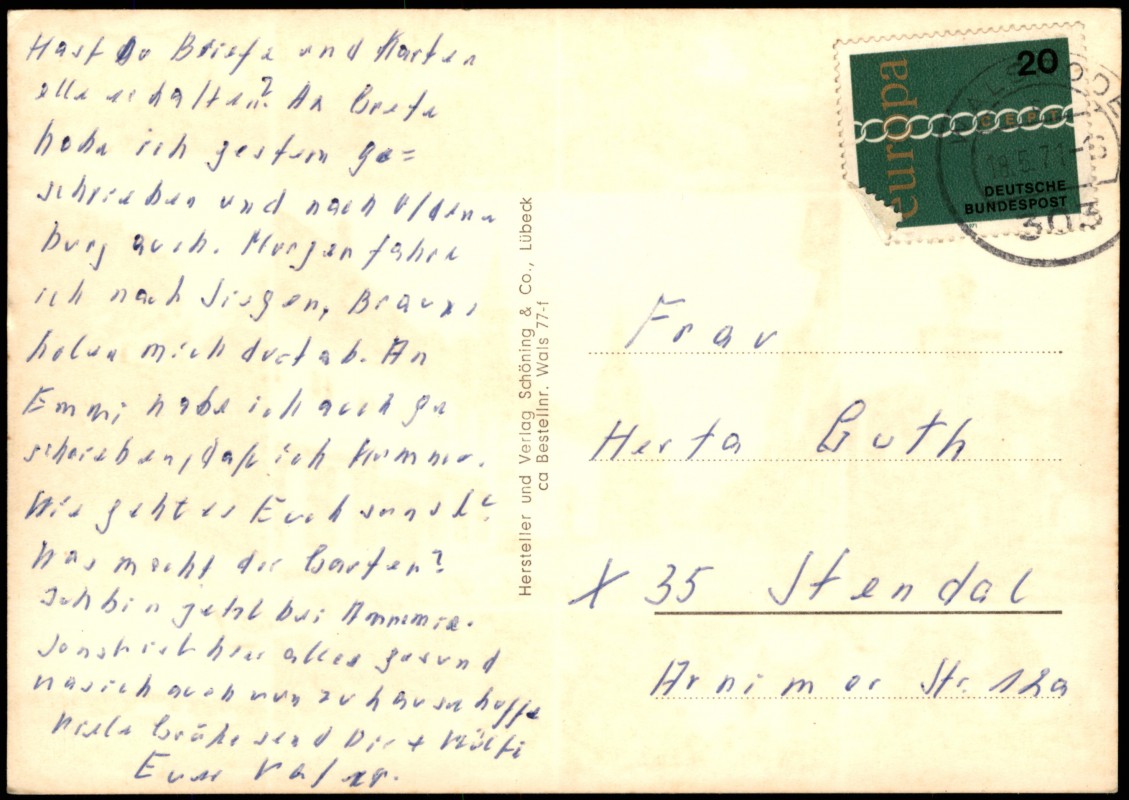 Hast Du Briefe und Karten
alle erhalten? An Grete
habe ich gestern ge=
schrieben und nach Olden
burg auch. Morgen fahre
ich nach Siegen, Brauns
holen mich dort ab. An
Emmi habe ich auch ge
schrieben, daß ich komme.
Wie geht es Euch sonst?
Was macht der Garten?
Ich bin jetzt bei
Sonst ist hier alles gesund
was ich auch von zu hause hoffe
Viele Grüße send Dir +
Euer Vater.
Hersteller und Verlag Schöning & Co., Lübeck
ca Bestellnr. Wals 77-f
europa
20
CEPT
DEUTSCHE
BUNDESPOST
18.5.71
303
Frau
Herta Guth
X 35 Stendal
Arnimer Str. 12a